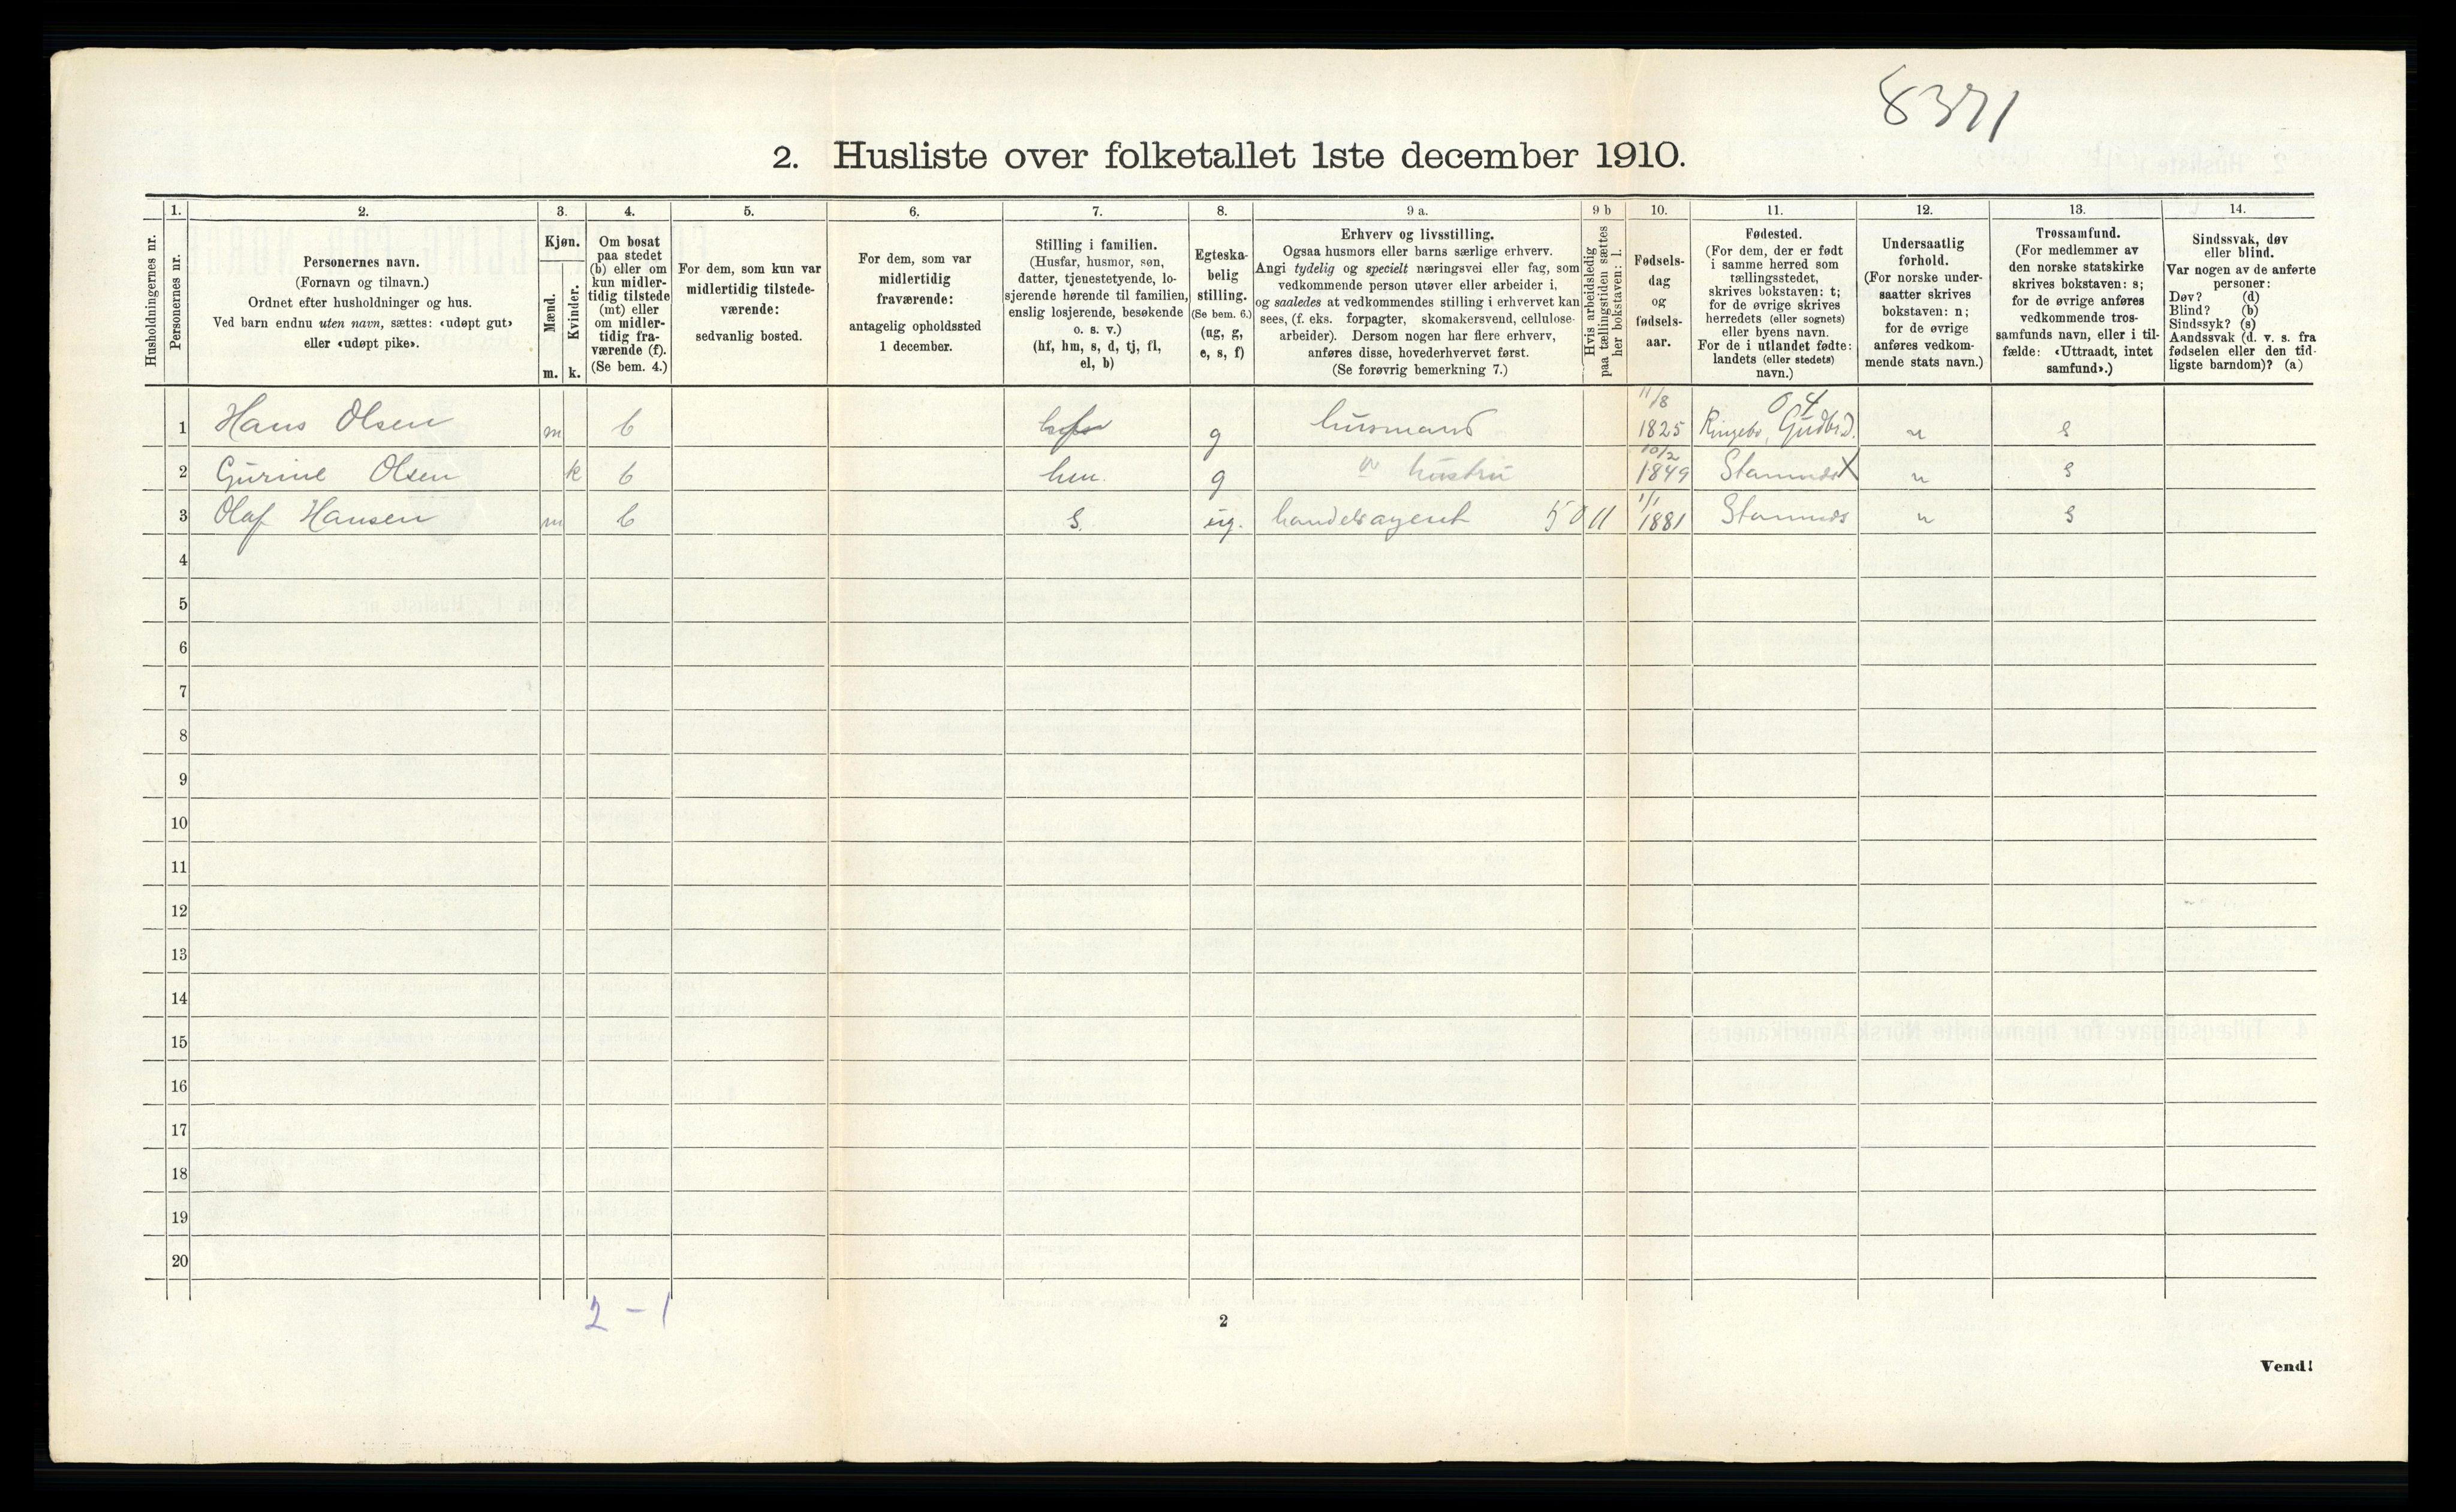 8371
2. Husliste over folketallet 1ste december 1910.
Husholdningernes nr.
1.
Personernes nr.
2.
Personernes navn.
(Fornavn og tilnavn.)
Ordnet efter husholdninger og hus.
Ved barn endnu uten navn, sættes: «udøpt gut»
eller «udøpt pike».
3.
Kjøn.
Mænd.
Kvinder.
m. k.
4.
Om bosat
paa stedet
(b) eller om
kun midler-
tidig tilstede
(mt) eller
om midler-
tidig fra-
værende (f).
(Se bem. 4.)
5.
For dem, som kun var
midlertidig tilstede-
værende:
sedvanlig bosted.
6.
For dem, som var
midlertidig
fraværende:
antagelig opholdssted
1 december.
7.
Stilling i familien.
(Husfar, husmor, søn,
datter, tjenestetyende, lo-
sjerende hørende til familien,
enslig losjerende, besøkende
o. s. v.)
(hf, hm, s, d, tj, fl,
el, b)
8.
Egteska-
belig
stilling.
(Se bem. 6.)
(ug, g,
e, s, f)
9 a.
Erhverv og livsstilling.
Ogsaa husmors eller barns særlige erhverv.
Angi tydelig og specielt næringsvei eller fag, som
vedkommende person utøver eller arbeider i,
og saaledes at vedkommendes stilling i erhvervet kan
sees, (f. eks. forpagter, skomakersvend, cellulose-
arbeider). Dersom nogen har flere erhverv,
anføres disse, hovederhvervet først.
(Se forøvrig bemerkning 7.)
9 b
Hvis arbeidsledig
paa tællingstiden sættes
her bokstaven: l.
10.
Fødsels-
dag
og
fødsels-
aar.
11.
Fødested.
(For dem, der er født
i samme herred som
tællingsstedet,
skrives bokstaven: t;
for de øvrige skrives
herredets (eller sognets)
eller byens navn.
For de i utlandet fødte:
landets (eller stedets)
navn.)
12.
Undersaatlig
forhold.
(For norske under-
saatter skrives
bokstaven: n;
for de øvrige
anføres vedkom-
mende stats navn.)
13.
Trossamfund.
(For medlemmer av
den norske statskirke
skrives bokstaven: s;
for de øvrige anføres
vedkommende tros-
samfunds navn, eller i til-
fælde: «Uttraadt, intet
samfund».)
14.
Sindssvak, døv
eller blind.
Var nogen av de anførte
personer:
Døv? (d)
Blind? (b)
Sindssyk? (s)
Aandssvak (d. v. s. fra
fødselen eller den tid-
ligste barndom)? (a)
11/8 04
1 Hans Olsen m b g husmand 1825 Ringebo, Gudbr.d. n s
10/2
2 Gurine Olsen k b hm. g hustru 1849 X n s
1/1
3 Olaf Hansen m b s. ug. handelsagent 50 11 1881 n s
4
5
6
7
8
9
10
11
12
13
14
15
16
17
18
19
20
2 - 1
2
Vend!